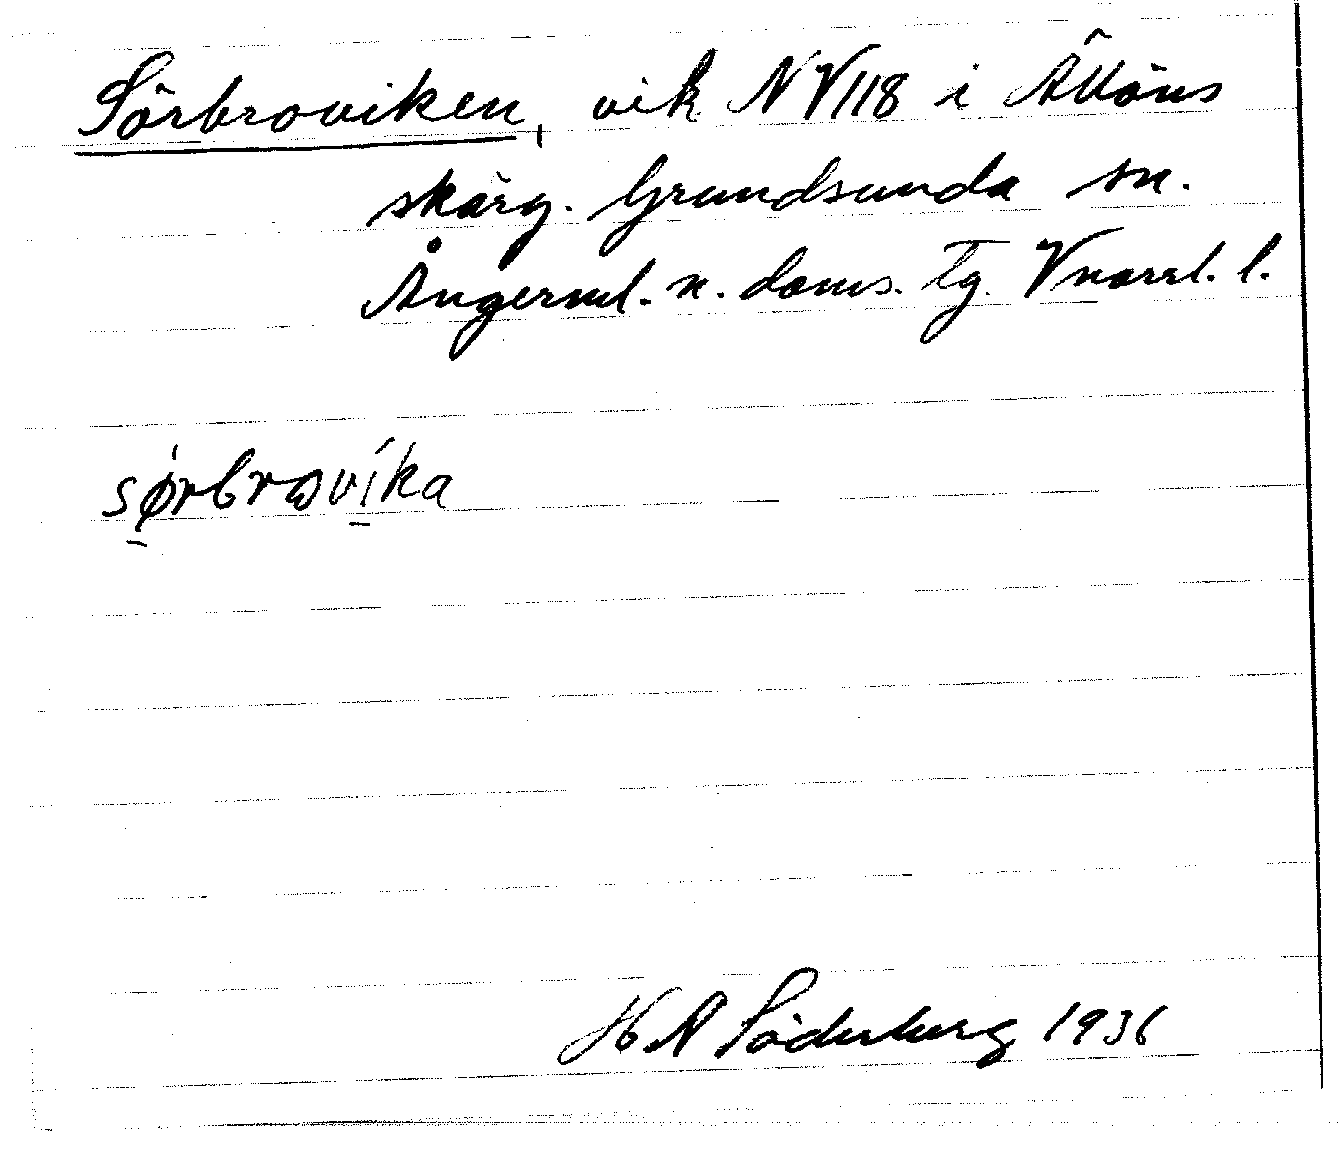 Sörbroviken, vik NV118 i Ällöns
skärg. Grundsunda sn.
Ångerml. n. doms. Tg. Vnorrl. l.
sørbrovíka
H A Söderberg 1936